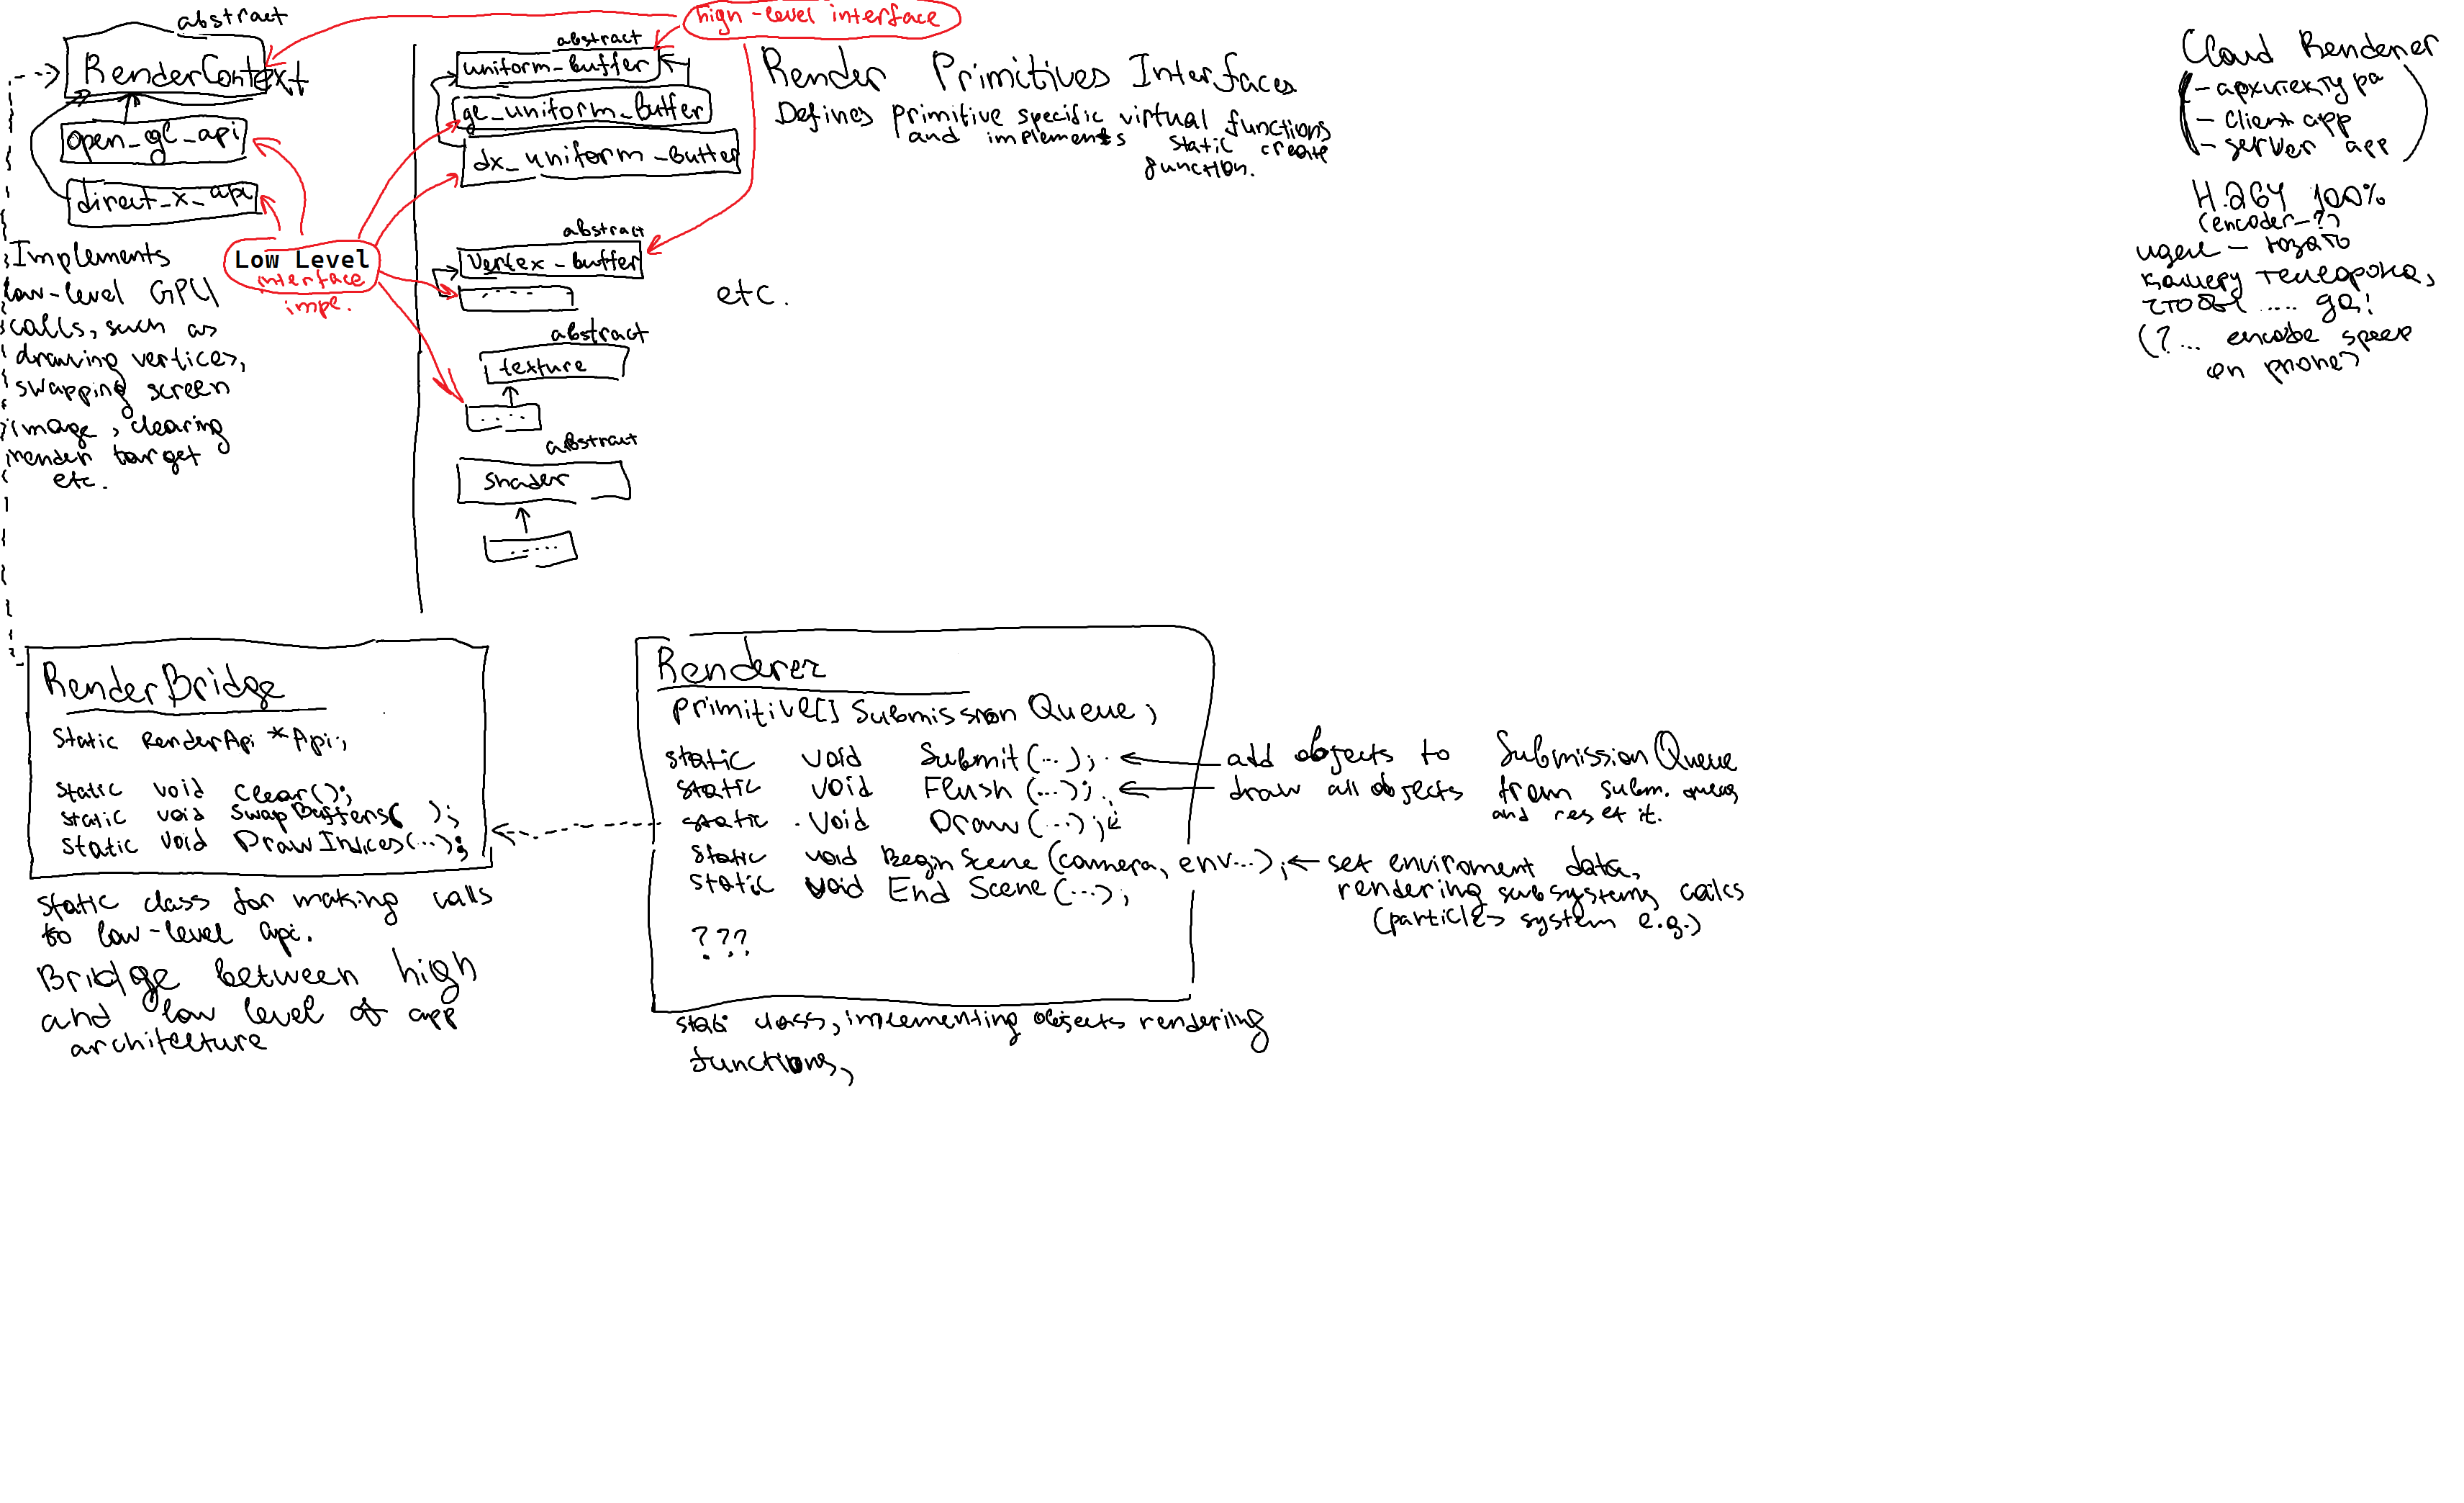 abstract
RenderContext
open_gl_api
direct_x_api
Implements
low-level GPU
calls, such as
drawing vertices,
swapping screen
image, clearing
render target
etc.
high-level interface
Low Level
interface
impl.
abstract
uniform_buffer
gl_uniform_buffer
dx_uniform_buffer
abstract
Vertex_buffer
.....
abstract
texture
.....
abstract
shader
.....
Render Primitives Interfaces
Defines primitive specific virtual functions
and implements static create
function.
etc.
Cloud Renderer
- архитектура
- client app
- server app
H.264 100%
(encoder-?)
идея - юзать
камеру телефона,
чтобы .... да!
(?... encode speed
on phone)
RenderBridge
static RenderApi *Api;
static void Clear();
static void SwapBuffers( );
static void DrawIndices(...);
static class for making calls
to low-level api.
Bridge between high
and low level of app
architecture
Renderer
primitive[] SubmissionQueue;
static void Submit(...); ← add objects to SubmissionQueue
static void Flush(...); ← draw all objects from subm. queue
and reset it.
static void Draw(...);
static void BeginScene(camera, env...); ← set enviroment data,
rendering subsystems calls
(particles system e.g.)
static void End Scene(...);
???
static class, implementing objects rendering
functions,